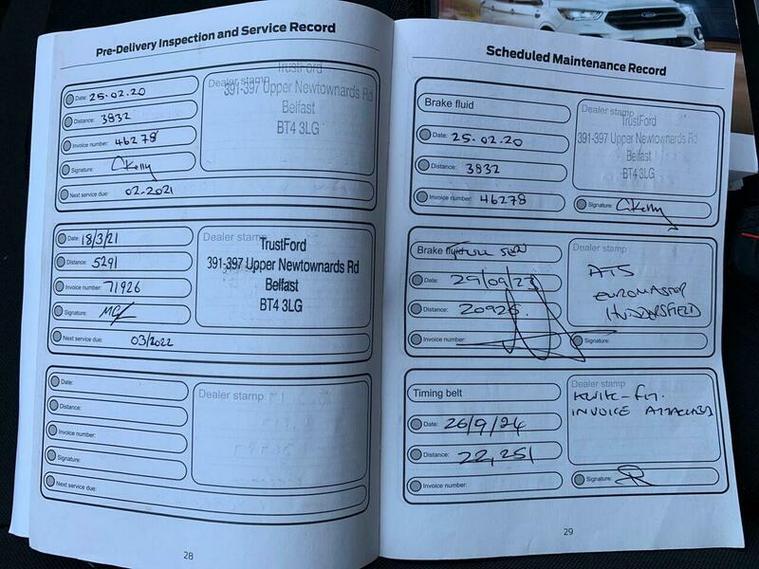 Pre-Delivery Inspection and Service Record
Date: 25.02.20
Distance: 3832
Invoice number: 46278
Signature: CKelly
Next service due: 02-2021
Dealer stamp
TrustFord
391-397 Upper Newtownards Rd
Belfast
BT4 3LG
Date: 18/3/21
Distance: 5291
Invoice number: 71926
Signature:
Next service due: 03/2022
Dealer stamp
TrustFord
391-397 Upper Newtownards Rd
Belfast
BT4 3LG
Date:
Distance:
Invoice number:
Signature:
Next service due:
Dealer stamp
28
Scheduled Maintenance Record
Brake fluid
Date: 25.02.20
Distance: 3832
Invoice number: 46278
Dealer stamp
TrustFord
391-397 Upper Newtownards Rd
Belfast
BT4 3LG
Signature: CKelly
Brake fluid
Date: 29/09/23
Distance: 20926.
Invoice number:
Dealer stamp
ATS
EUROMASTER
HUDDERSFIELD
Signature:
Timing belt
Date: 26/9/24
Distance: 22,251
Invoice number:
Dealer stamp
KWIK-FIT.
INVOICE ATTACHED
Signature:
29